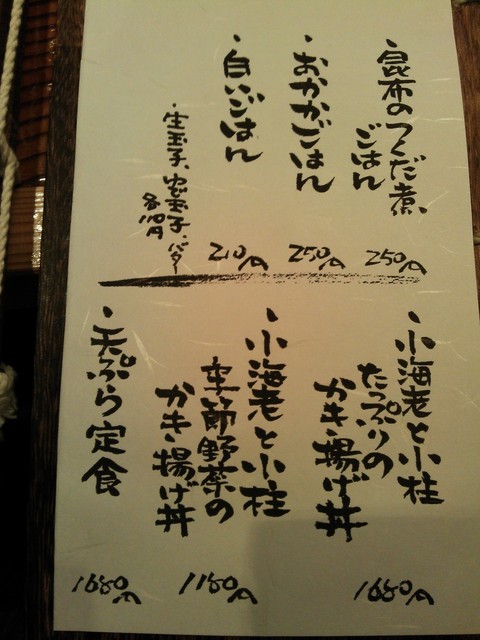 ・昆布のつくだ煮
ごはん
250円
・おかかごはん
250円
・白いごはん
210円
・生玉子、温玉子、バター
各100円
・小海老と小柱
たっぷりの
かき揚げ丼
1680円
・小海老と小柱
季節野菜の
かき揚げ丼
1180円
・天ぷら定食
1680円